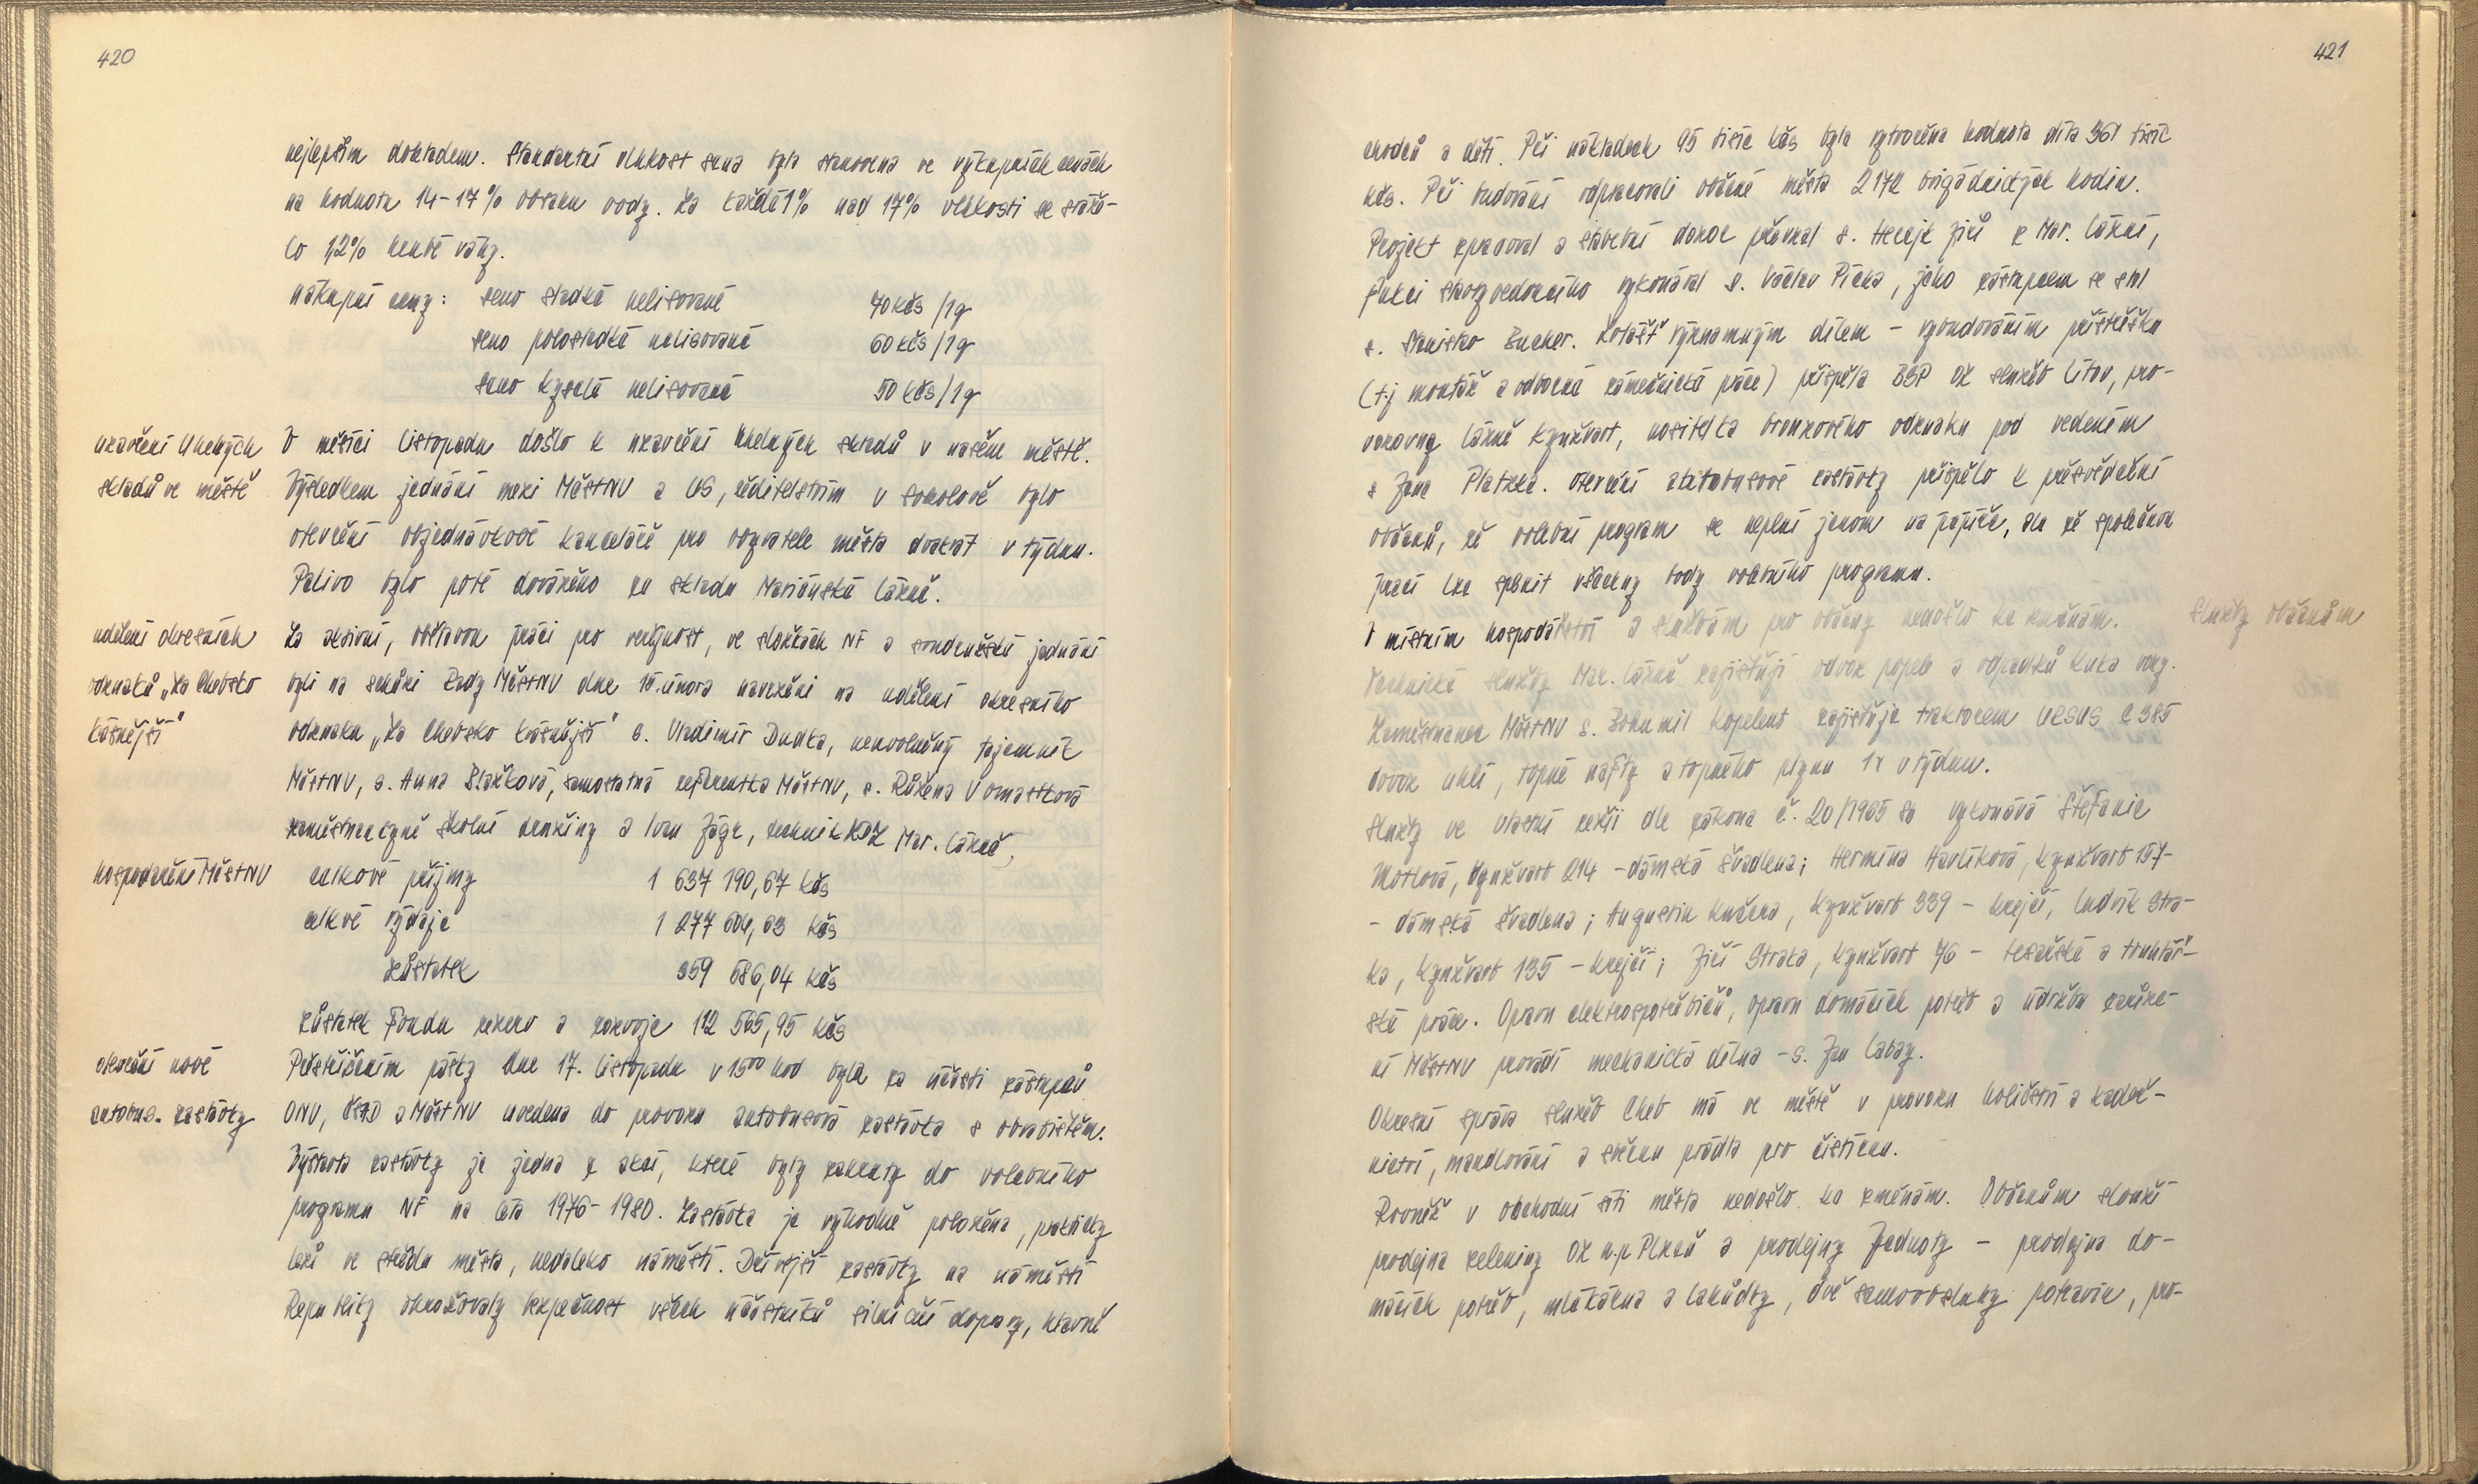 420
nejlepším dokladem. Standartní vlhkost sena byla stanovena ve výkupních cenách
na hodnotu 14-17% obsahu vody. Za každé 1% nad 17% vlhkosti se sráže-
lo 1,2% hrubé váhy.
nákupní ceny: seno sladké nelisované 70 kčs/1q
seno polosladké nelisované 60 kčs/1q
seno kyselé nelisované 50 kčs/1q
uzavření uhelných
skladů ve městě
V měsíci listopadu došlo k uzavření uhelných skladů v našem městě.
Výsledkem jednání mezi MěstNV a US, ředitelstvím v Sokolově bylo
otevření objednávkové kanceláře pro obyvatele města dvakrát v týdnu.
Palivo bylo poté dováženo ze skladu Mariánské Lázně.
udělení okresních
odznaků „Za Chebsko
krásnější"
Za aktivní, obětavou práci pro veřejnost, ve složkách NF a soudružské jednání
byli na schůzi Rady MěstNV dne 15. února navrženi na udělení okresního
odznaku „Za Chebsko krásnější" s. Vladimír Dudka, neuvolněný tajemník
MěstNV, s. Anna Blažková, samostatná referentka MěstNV, s. Růžena Vomastková
zaměstnankyně školní družiny a Ivan Jágr, technik Mar. Lázně,
hospodaření MěstNV
celkové příjmy 1 637 190,67 kčs
celkvé výdaje 1 277 604,63 kčs
zůstatek 359 586,04 kčs
zůstatek Fondu rezerv a rozvoje 112 565,95 kčs
otevření nové
autobus. zastávky
Přestřižením pásky dne 17. listopadu v 15⁰⁰ hod byla za účasti zástupců
ONV, ČSAD a MěstNV uvedena do provozu autobusová zastávka s obratištěm.
Výstavba zastávky je jedna z akcí, které byly zahrnuty do volebního
programu NF na léta 1976-1980. Zastávka je výhodně položena, prakticky
leží ve středu města, nedaleko náměstí. Dřívější zastávky na náměstí
Republiky ohrožovaly bezpečnost všech účastníků silniční dopravy, hlavně
421
chodců a dětí. Při nákladech 95 tisíc kčs byla vytvořena hodnota díla 361 tisíc
kčs. Při budování odpracovali občané města 2172 brigádnických hodin.
Projekt zpracoval a stavební dozor převzal s. Herejk Jiří z Mar. Lázní,
funkci stavbyvedoucího vykonával s. Václav Pícka, jeho zástupcem se stal
s. Stanislav Bucher. Zvlášť významným dílem - vybudováním přístřešku
(t.j montáž a odborná zámečnická práce) přispěla BSP OZ služeb Lítov, pro-
vozovny Lázně Kynžvart, nositelka bronzového odznaku pod vedením
s Jana Platzka. Otevření autobusové zastávky přispělo k přesvědčení
občanů, že volební program se neplní jenom na papíře, ale že společnou
prací lze splnit všechny body volebního programu.
V místním hospodářství a službám pro občany nedošlo ke změnám.
služby občanům
Technické služby Mar. Lázně zajišťují odvoz popele a odpadků kuka vozy.
Zaměstnanec MěstNV s. Bohumil Kopelent zajišťuje traktorem URSUS C 385
dovoz uhlí, topné nafty a topného plynu 1x v týdnu.
Služby ve vlastní režii dle zákona č. 20/1965 Sb vykonává Štefanie
Motlová, Kynžvart 214 - dámská švadlena; Hermína Havlíková, Kynžvart 157-
- dámská švadlena; Augustin Kučera, Kynžvart 339 - krejčí, Ludvík Stra-
ka, Kynžvart 135 - krejčí; Jiří Straka, Kynžvart 76 - tesařské a truhlář-
ské práce. Opravu elektrospotřebičů, opravu domácích potřeb a údržbu zaříze-
ní MěstNV provádí mechanická dílna - s. Jan Labay.
Okresní správa služeb Cheb má ve městě v provozu holičství a kadeř-
nictví, mandlování a sběrnu prádla pro čistírnu.
Rovněž v obchodní síti města nedošlo ke změnám. Občanům slouží
prodejna zeleniny OZ n.p Plzeň a prodejny Jednoty - prodejna do-
mácích potřeb, mlékárna a lahůdky, dvě samoobsluhy potravin, pro-